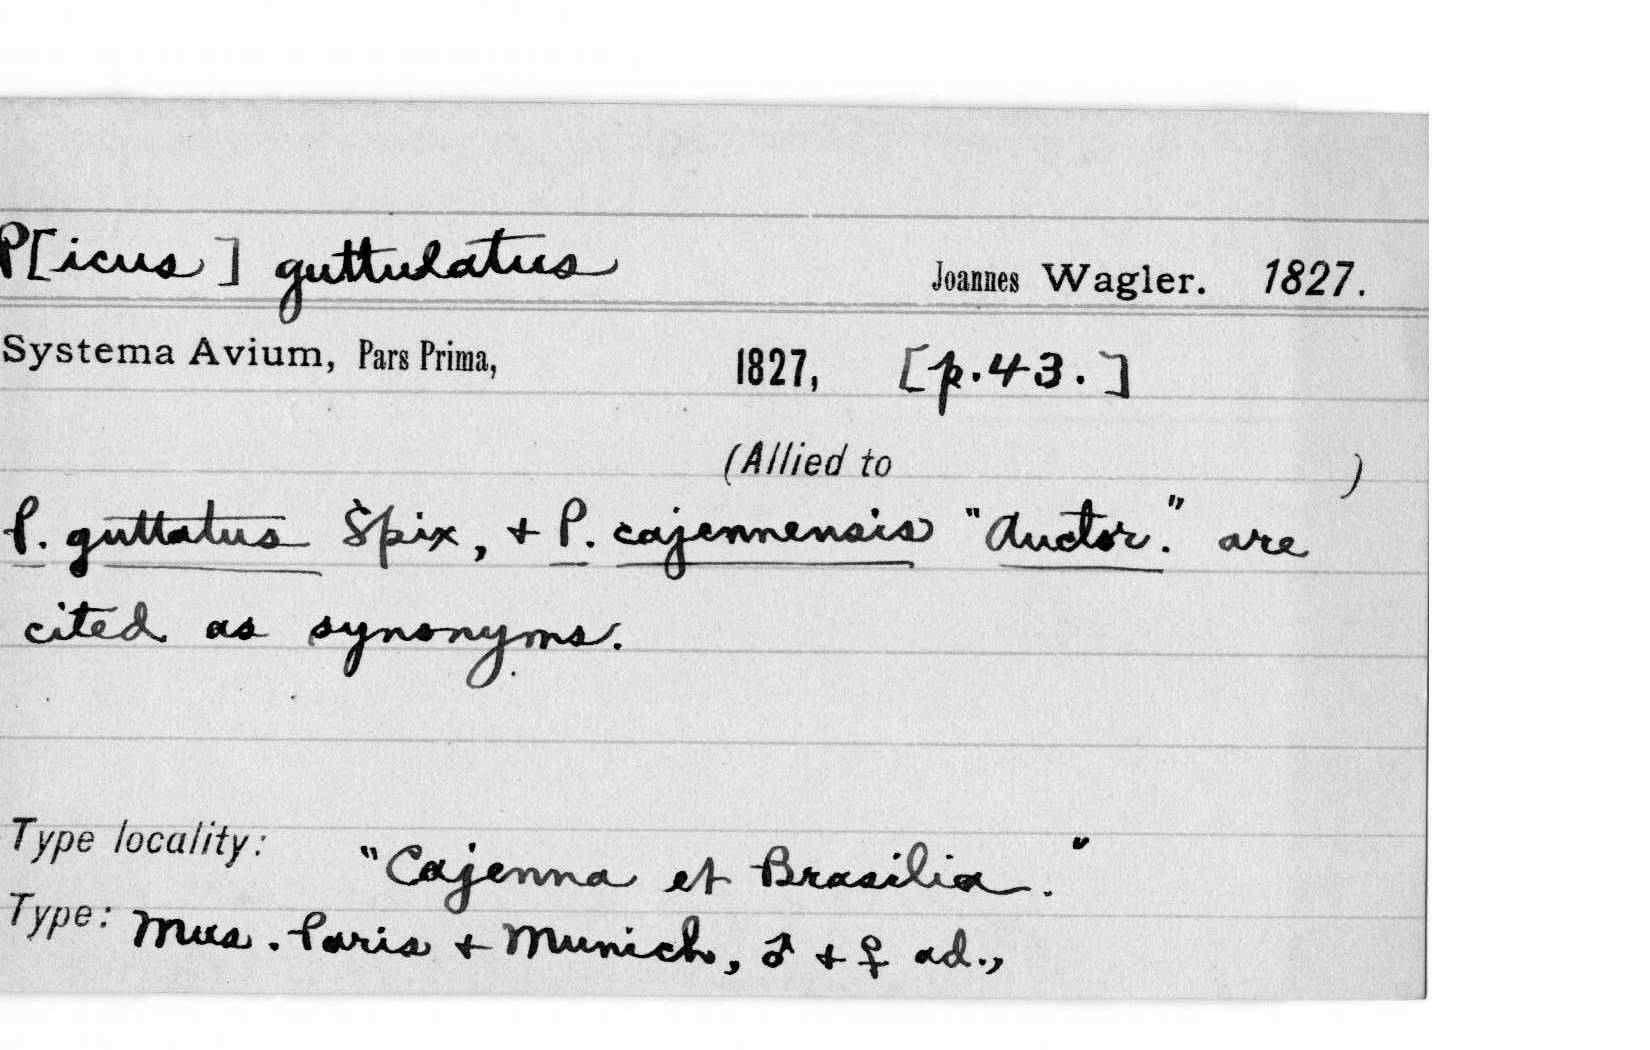 P[icus] guttulatus Joannes Wagler. 1827.
Systema Avium, Pars Prima, 1827, [p.43.]
(Allied to )
P. guttatus Spix, + P. cajennensis "Auctor." are
cited as synonyms.
Type locality: "Cajenna et Brasilia."
Type: Mus. Paris + Munich, ♂ + ♀ ad.,